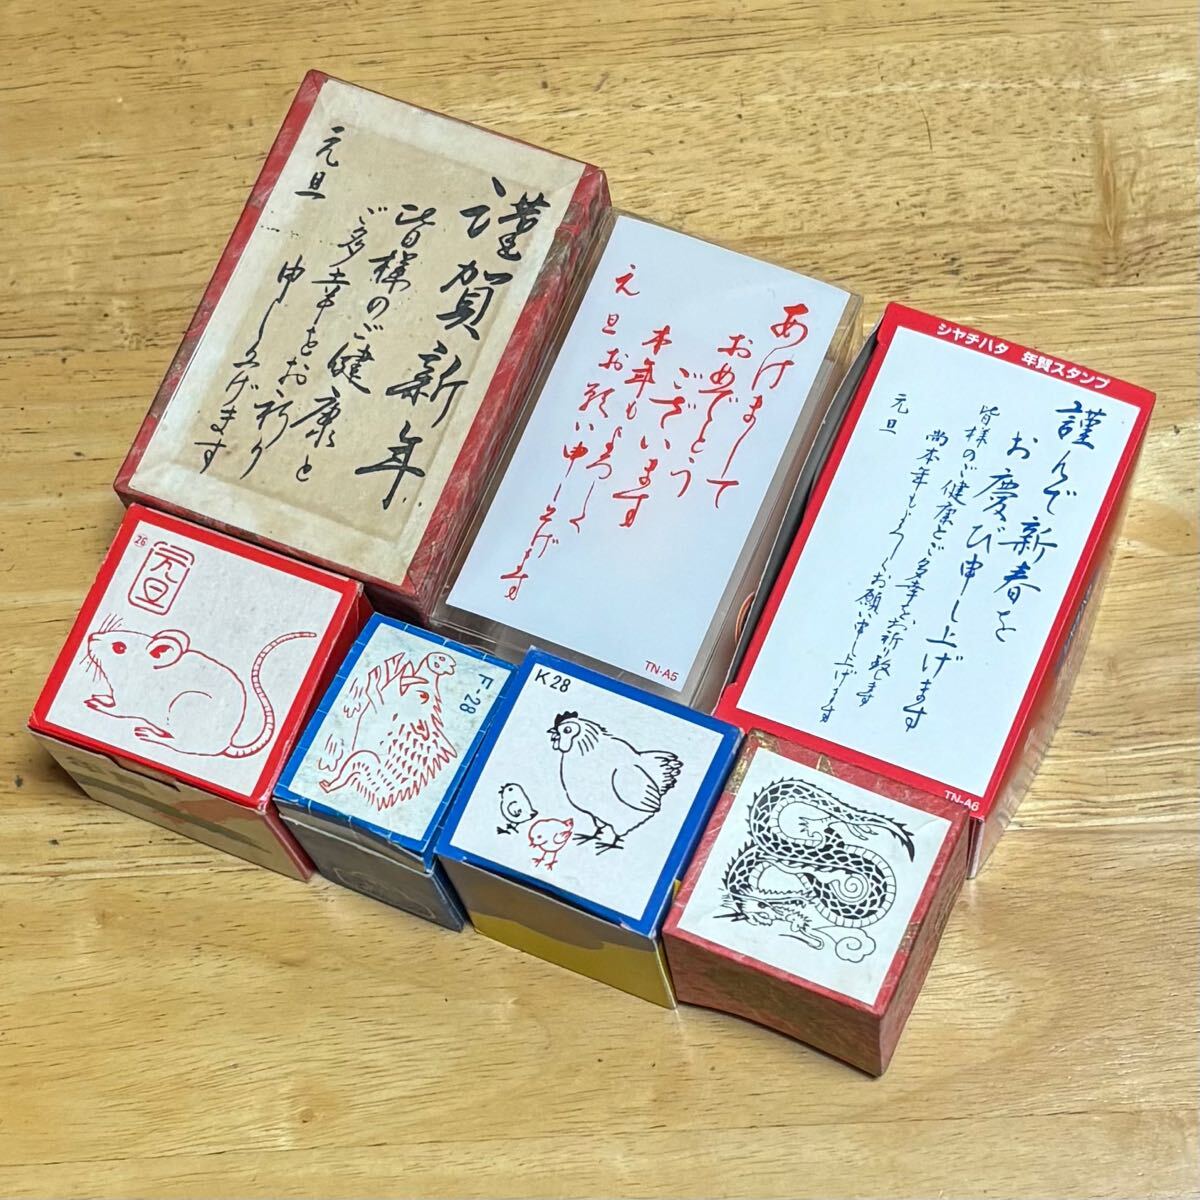 謹賀新年
皆様のご健康と
ご多幸をお祈り
申し上げます
元旦
あけまして
おめでとう
ございます
本年もよろしく
お願い申し上げます
元旦
TN-A5
シヤチハタ 年賀スタンプ
謹んで新春を
お慶び申し上げます
皆様のご健康とご多幸をお祈り致します
尚本年もよろしくお願い申し上げます
元旦
TN-A6
26
元旦
F-28
K28